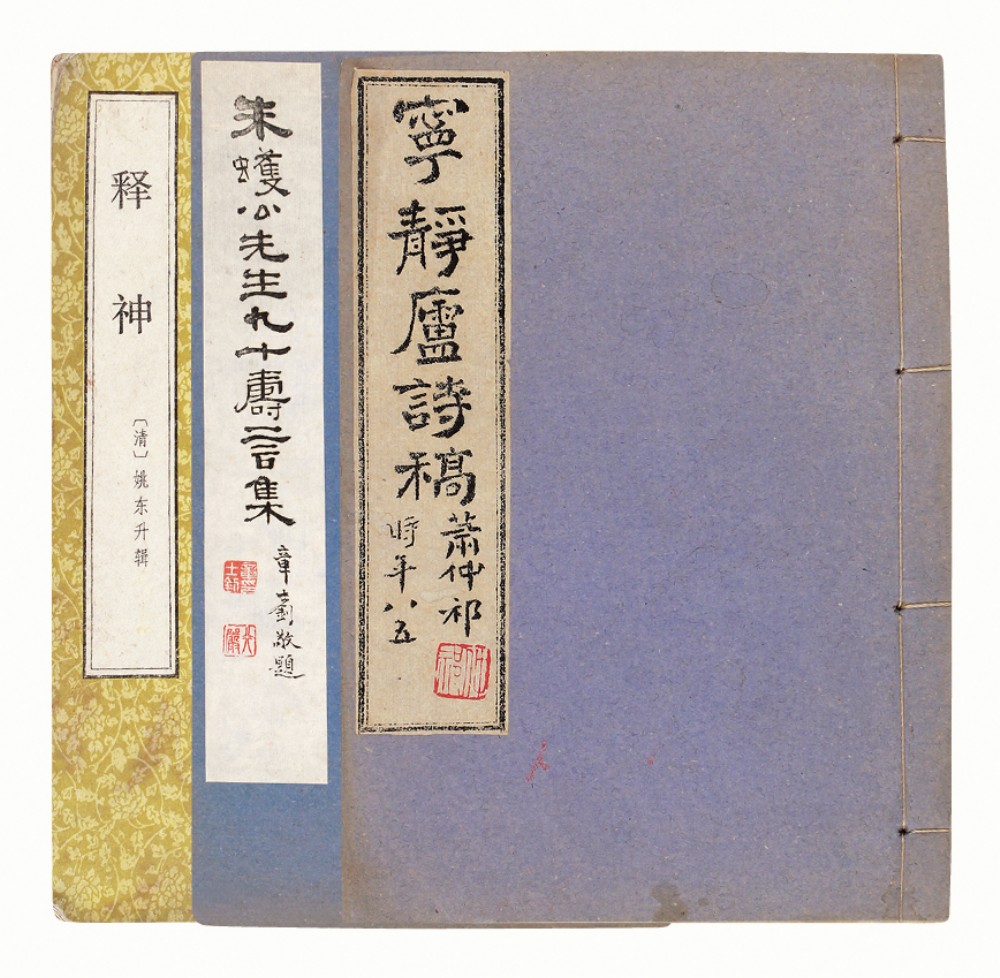 寧靜廬詩稿
蕭仲祁
時年八五
朱蠖公先生九十壽言集
章 敬題
释神
〔清〕姚东升辑